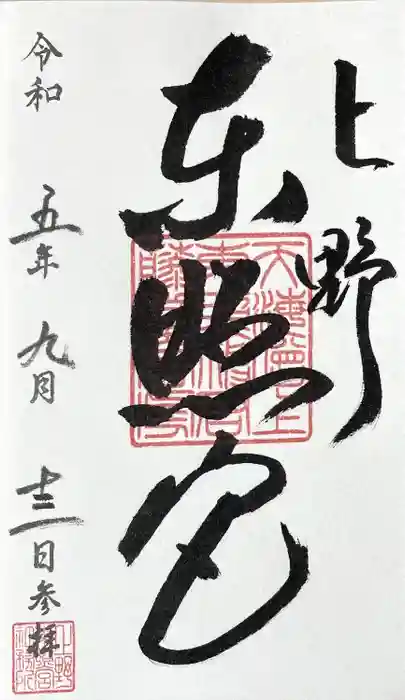 上野
東照宮
令和五年九月十三日参拝